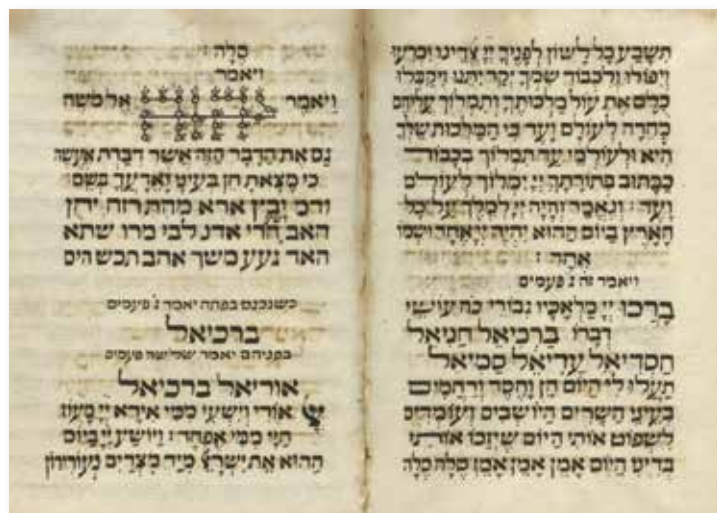 תשבע כל לשון לפניך יי אלהינו יכרעו
ויפולו ולכבוד שמך יקר יתנו ויקבלו
כלם את עול מלכותך ותמלוך עליהם
מהרה לעולם ועד כי המלכות שלך
היא ולעולמי עד תמלוך בכבוד
ככתוב בתורתך יי ימלוך לעולם
ועד : ונאמר והיה יי למלך על כל
הארץ ביום ההוא יהיה יי אחד ושמו
אחד :
ויאמר זה ג פעמים
ברכו יי מלאכיו גבורי כח עושי
דברו ברכיאל חניאל
חסדיאל עדיאל סמיאל
תעלו לי היום חן וחסד ורחמים
בעיני השרים היושבים ועומדים
לשפוט אותי היום שיזכו אותי
בדיני היום אמן אמן אמן סלה סלה
סלה :
ויאמר
ויאמר אל משה
גם את הדבר הזה אשר דברת אעשה
כי מצאת חן בעיני ואדעך בשם
והמ יבין ארא מהת רזח יחן
האב חרי אדנ לבי מרו שתא
האד נעע משך אהב תכש הים
כשנכנס בפתח יאמר ג פעמים
ברכיאל
בפניהם יאמר שלישה פעמים
אוריאל ברכיאל
יי אורי וישעי ממי אירא יי מעוז
חיי ממי אפחד : ויושע יי ביום
ההוא את ישראל מיד מצרים